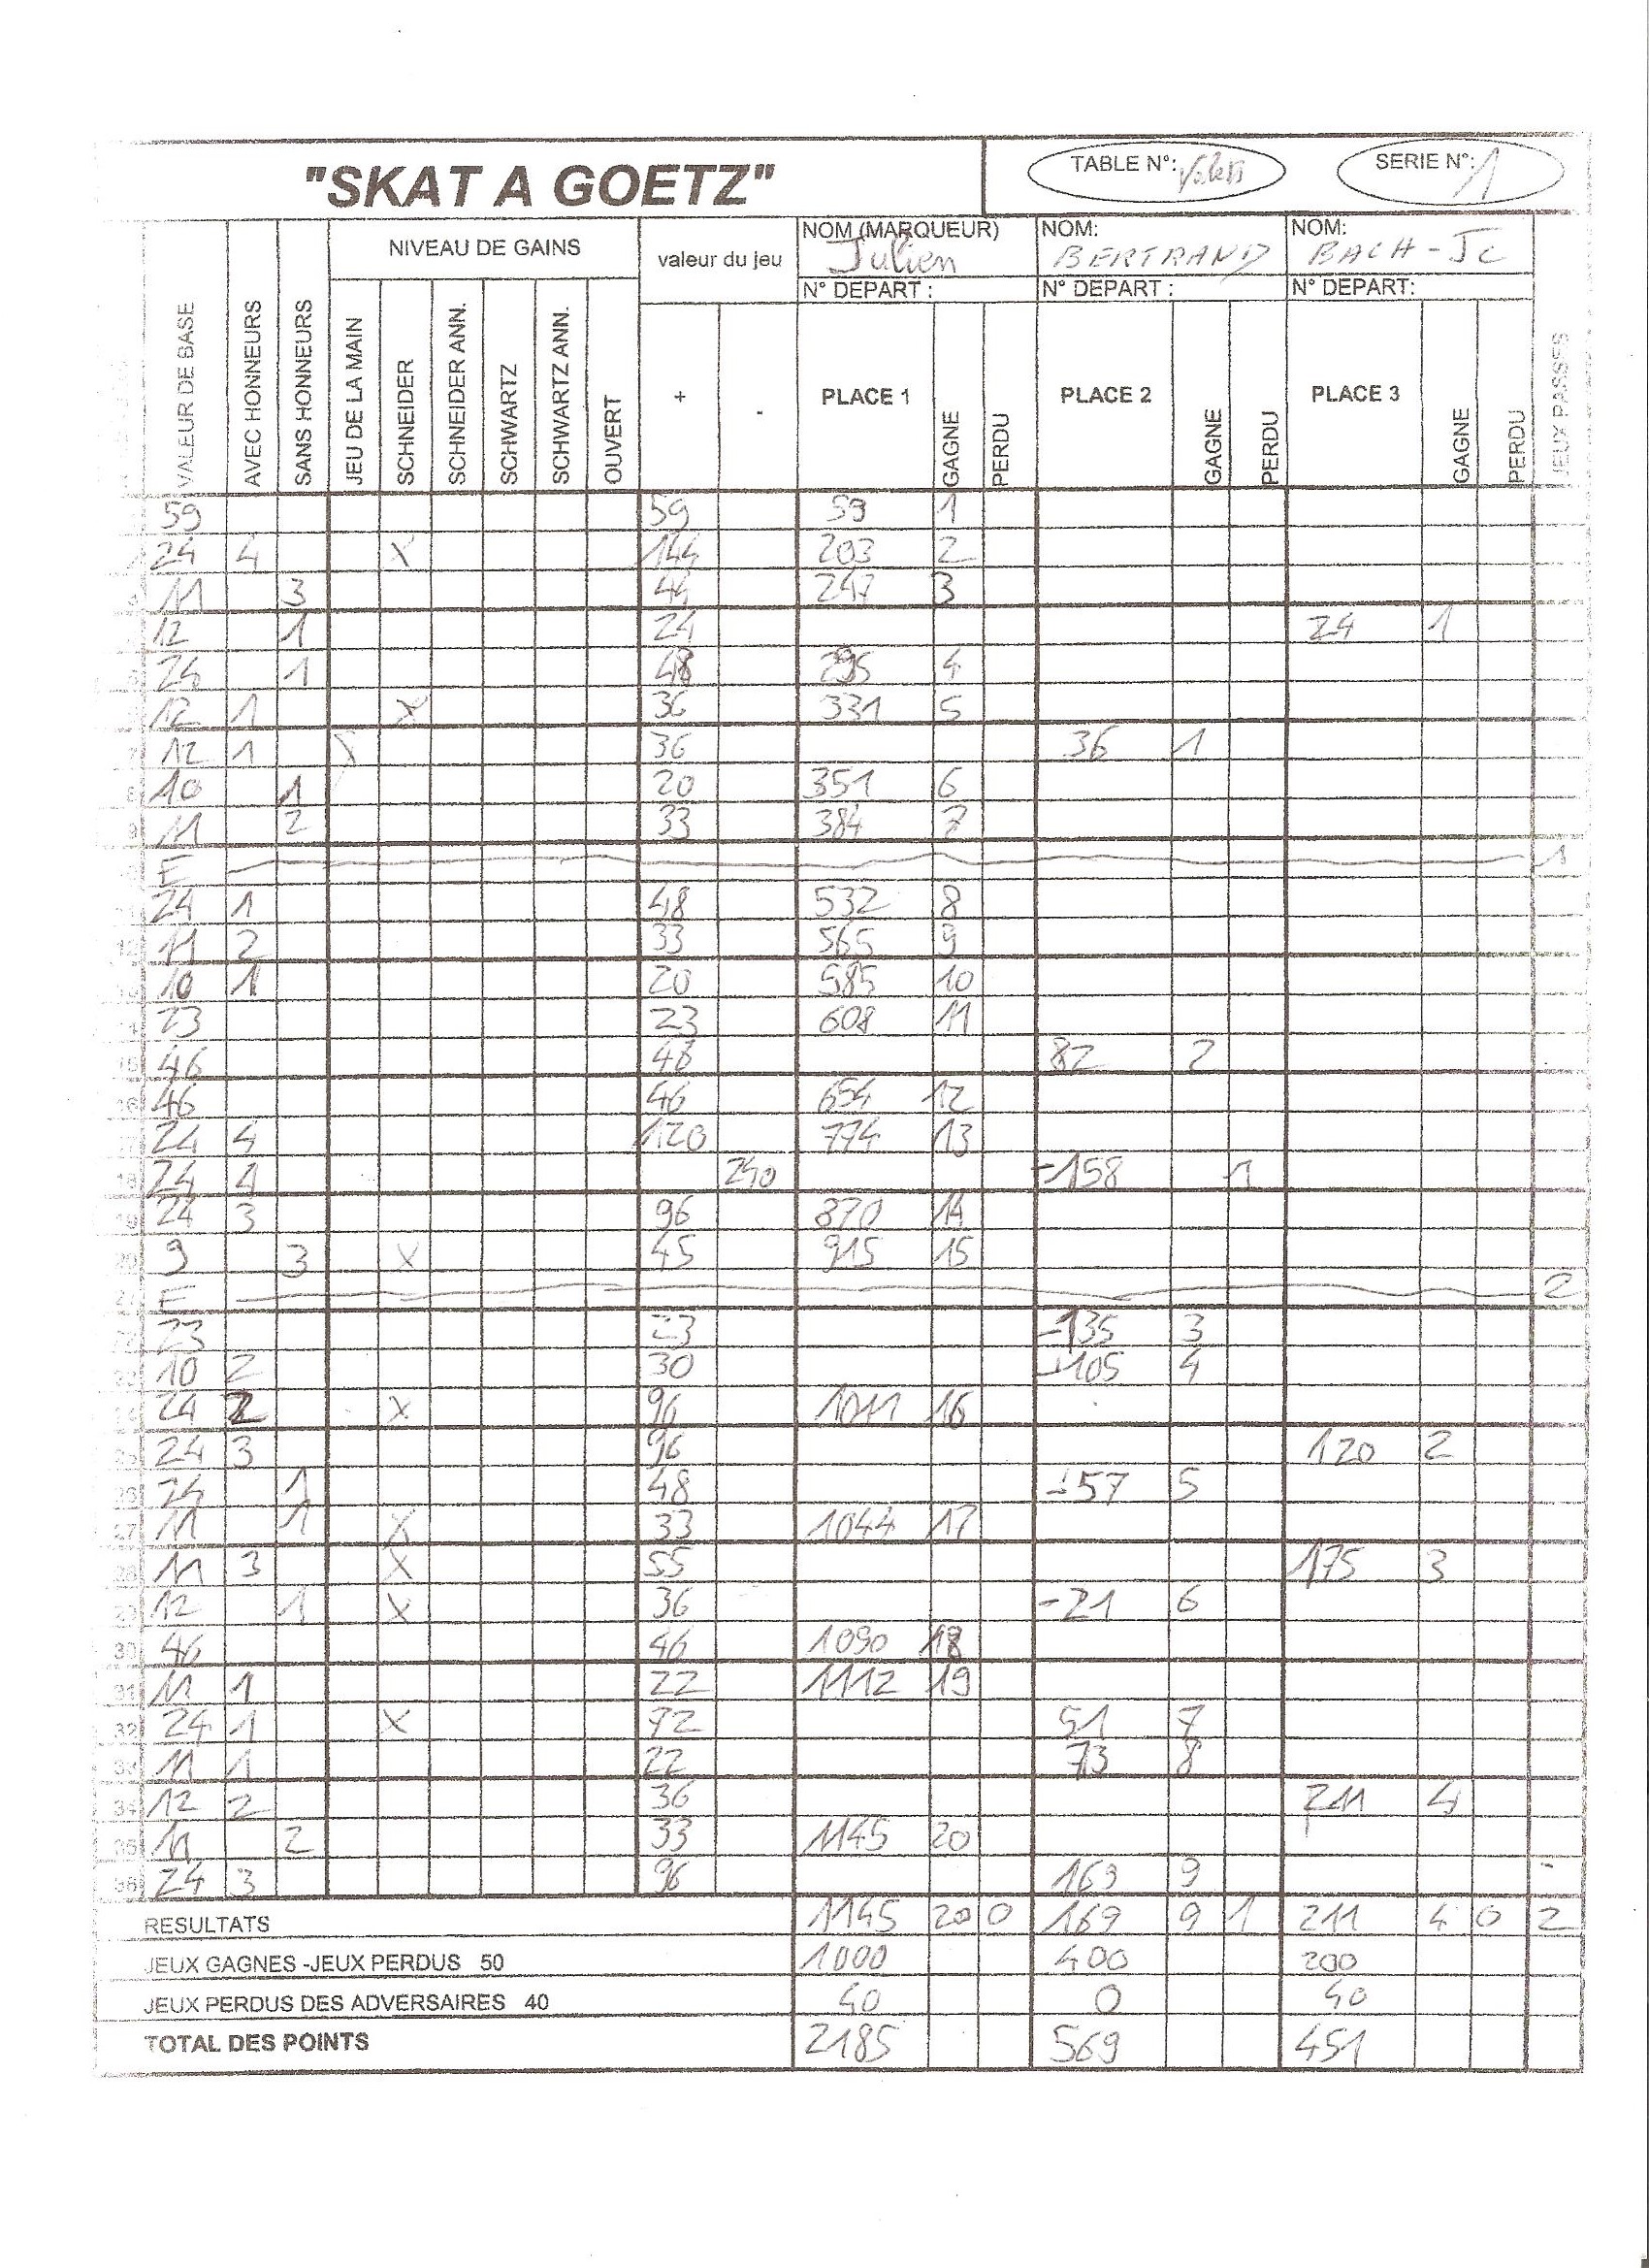 "SKAT A GOETZ" TABLE N°: SERIE N°: 1
NIVEAU DE GAINS valeur du jeu NOM (MARQUEUR) Julien NOM: BERTRAND NOM: BACH-JC
N° DEPART : N° DEPART : N° DEPART:
VALEUR DE BASE AVEC HONNEURS SANS HONNEURS JEU DE LA MAIN SCHNEIDER SCHNEIDER ANN. SCHWARTZ SCHWARTZ ANN. OUVERT + - PLACE 1 GAGNE PERDU PLACE 2 GAGNE PERDU PLACE 3 GAGNE PERDU JEUX PASSES
59 59 59 1
24 4 X 144 203 2
11 3 44 247 3
12 1 24 24 1
24 1 48 295 4
12 1 X 36 331 5
7 12 1 X 36 36 1
8 10 1 20 351 6
9 11 2 33 384 7
E 1
24 1 48 532 8
12 11 2 33 565 9
13 10 1 20 585 10
23 23 608 11
15 46 46 82 2
16 46 46 654 12
17 24 4 120 774 13
18 24 4 240 -158 1
19 24 3 96 870 14
20 9 3 X 45 915 15
21 E 2
22 23 23 -135 3
23 10 2 30 -105 4
24 24 2 X 96 1011 16
25 24 3 96 120 2
26 24 1 48 -57 5
27 11 1 X 33 1044 17
28 11 3 X 55 175 3
29 12 1 X 36 -21 6
30 46 46 1090 18
31 11 1 22 1112 19
32 24 1 X 72 51 7
33 11 1 22 73 8
34 12 2 36 211 4
35 11 2 33 1145 20
36 24 3 96 169 9
RESULTATS 1145 20 0 169 9 1 211 4 0 2
JEUX GAGNES -JEUX PERDUS 50 1000 400 200
JEUX PERDUS DES ADVERSAIRES 40 40 0 40
TOTAL DES POINTS 2185 569 451